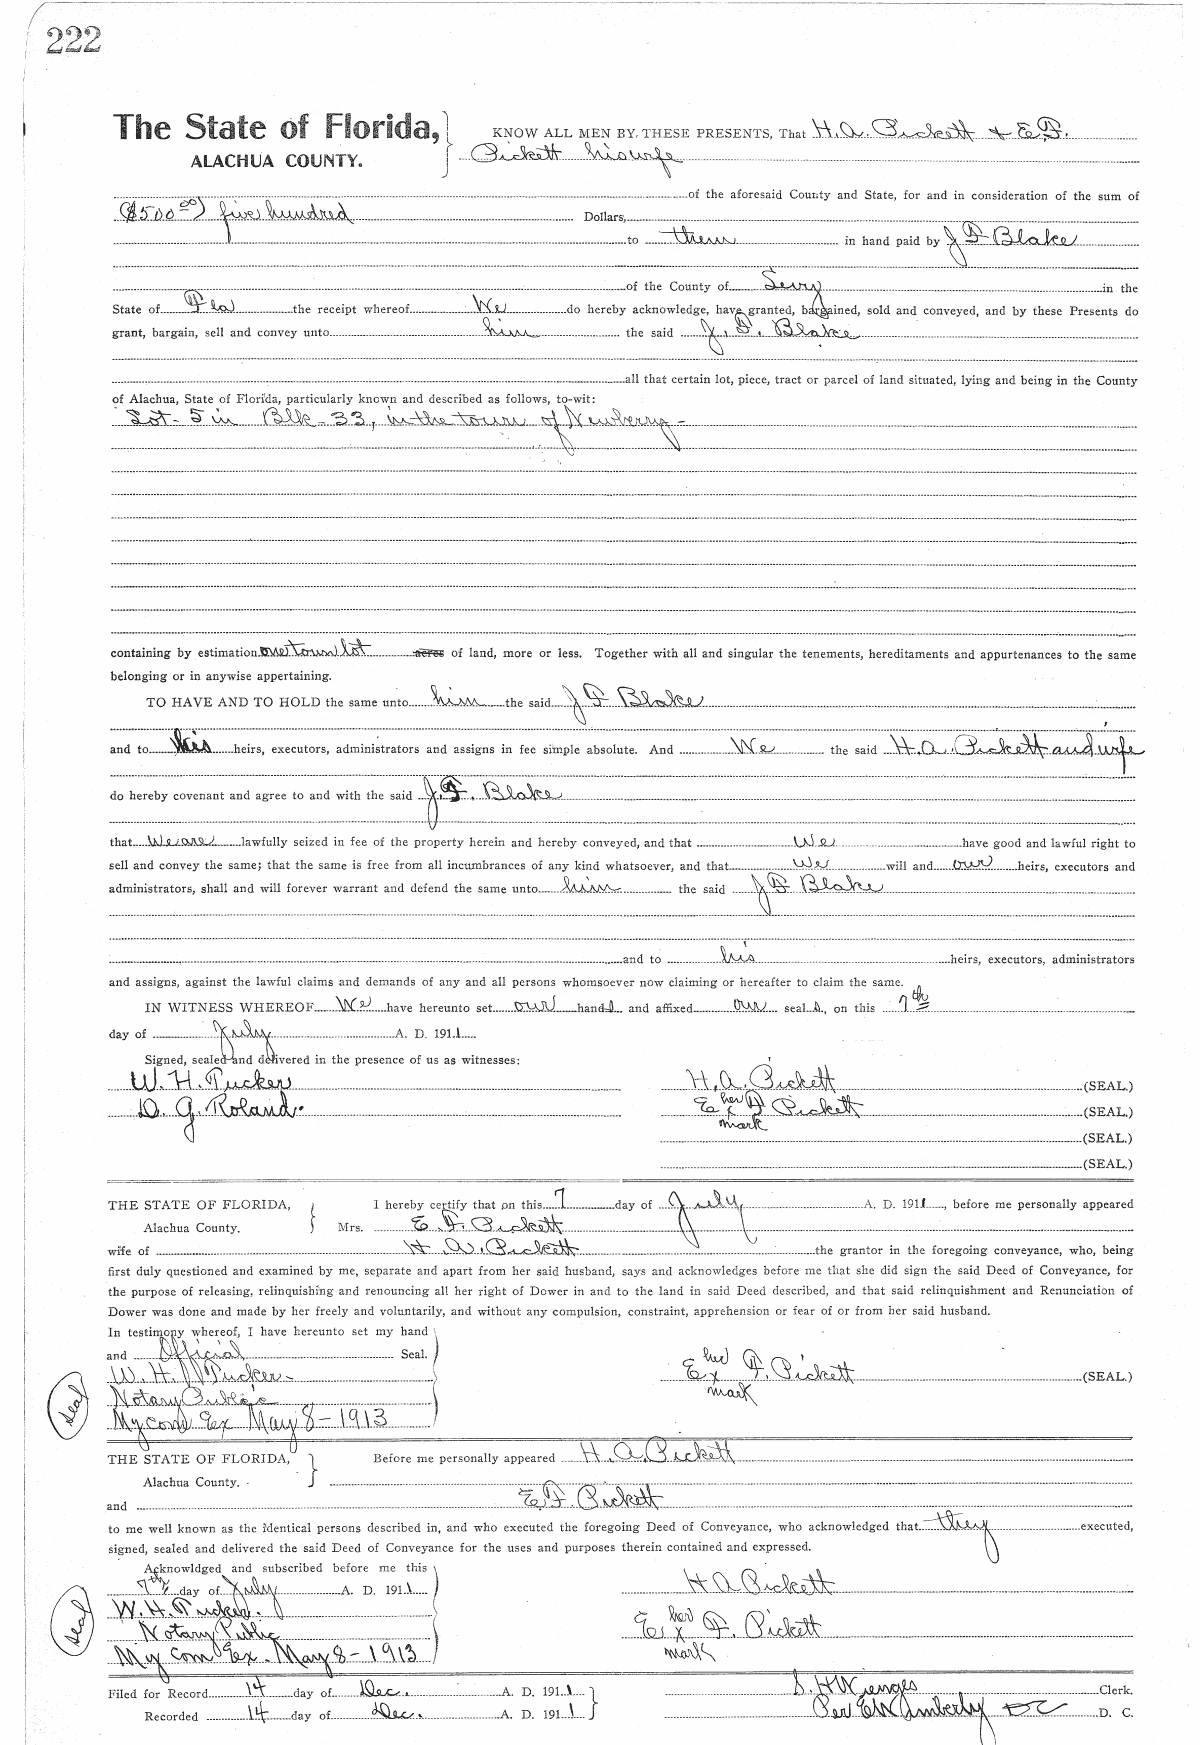 222
The State of Florida, KNOW ALL MEN BY THESE PRESENTS, That H. A. Pickett & E F.
ALACHUA COUNTY. Pickett his wife
of the aforesaid County and State, for and in consideration of the sum of
($500 00) five hundred Dollars,
to them in hand paid by J F Blake
of the County of Levy in the
State of Fla the receipt whereof We do hereby acknowledge, have granted, bargained, sold and conveyed, and by these Presents do
grant, bargain, sell and convey unto him the said J. F. Blake
all that certain lot, piece, tract or parcel of land situated, lying and being in the County
of Alachua, State of Florida, particularly known and described as follows, to-wit:
Lot - 5 in Blk - 33, in the town of Newberry -
containing by estimation one town lot acres of land, more or less. Together with all and singular the tenements, hereditaments and appurtenances to the same
belonging or in anywise appertaining.
TO HAVE AND TO HOLD the same unto him the said J F Blake
and to his heirs, executors, administrators and assigns in fee simple absolute. And We the said H. A. Pickett and wife
do hereby covenant and agree to and with the said J. F. Blake
that We are lawfully seized in fee of the property herein and hereby conveyed, and that We have good and lawful right to
sell and convey the same; that the same is free from all incumbrances of any kind whatsoever, and that We will and our heirs, executors and
administrators, shall and will forever warrant and defend the same unto him the said J F Blake
and to his heirs, executors, administrators
and assigns, against the lawful claims and demands of any and all persons whomsoever now claiming or hereafter to claim the same.
IN WITNESS WHEREOF We have hereunto set our hands and affixed our seals, on this 7th
day of July A. D. 1911
Signed, sealed and delivered in the presence of us as witnesses:
W. H. Tucker H. A. Pickett (SEAL.)
D. G. Roland. E her x F Pickett (SEAL.)
mark (SEAL.)
(SEAL.)
THE STATE OF FLORIDA, I hereby certify that on this 7 day of July A. D. 1911, before me personally appeared
Alachua County. Mrs. E. F. Pickett
wife of H. A. Pickett the grantor in the foregoing conveyance, who, being
first duly questioned and examined by me, separate and apart from her said husband, says and acknowledges before me that she did sign the said Deed of Conveyance, for
the purpose of releasing, relinquishing and renouncing all her right of Dower in and to the land in said Deed described, and that said relinquishment and Renunciation of
Dower was done and made by her freely and voluntarily, and without any compulsion, constraint, apprehension or fear of or from her said husband.
In testimony whereof, I have hereunto set my hand
and Official Seal.
W. H. Tucker - E her x F. Pickett (SEAL.)
mark
Seal
Notary Public
My com Ex May 8 - 1913
THE STATE OF FLORIDA, Before me personally appeared H. A. Pickett
Alachua County.
and E. F. Pickett
to me well known as the identical persons described in, and who executed the foregoing Deed of Conveyance, who acknowledged that they executed,
signed, sealed and delivered the said Deed of Conveyance for the uses and purposes therein contained and expressed.
Acknowldged and subscribed before me this
7th day of July A. D. 1911 H A Pickett
Seal
W. H. Tucker.
Notary Public E her x F. Pickett
My Com Ex. May 8 - 1913 mark
Filed for Record 14 day of Dec. A. D. 1911 S. H Wienges Clerk.
Recorded 14 day of Dec. A. D. 1911 Per E W Amberly DC D. C.